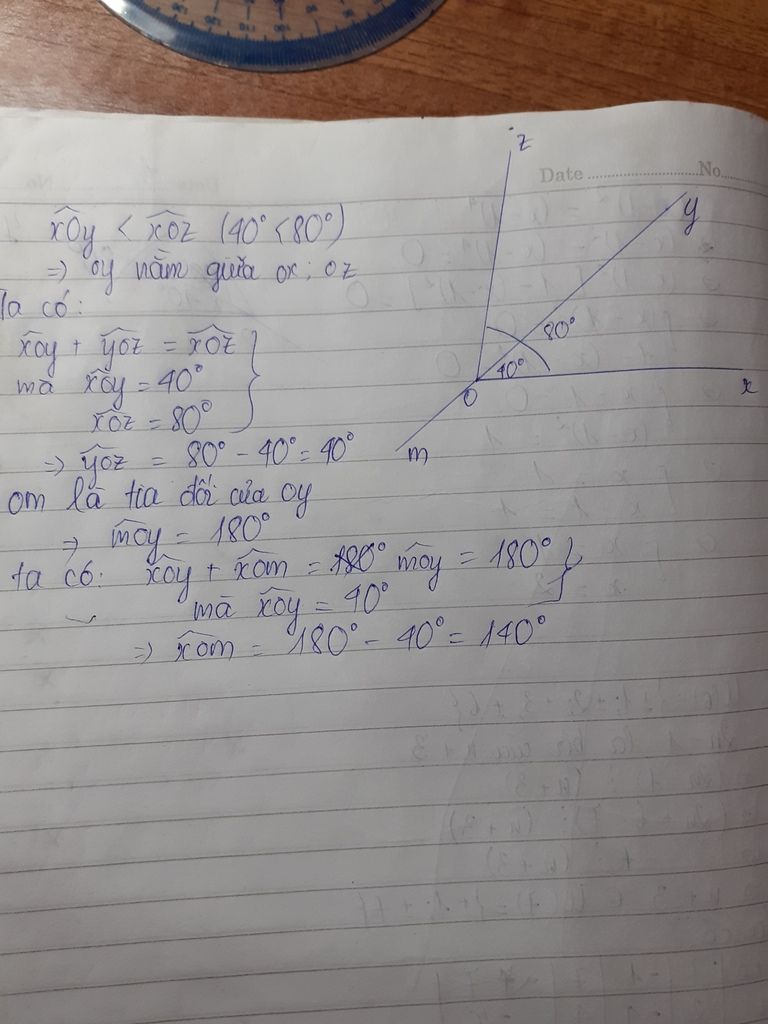 z
Date ........................ No.....
y
xOy < xOz (40° < 80°)
=> oy nằm giữa ox; oz
Ta có:
xoy + yoz = xOz
mà xOy = 40°
xoz = 80°
80°
40°
x
O
m
=> yoz = 80° - 40° = 40°
om là tia đối của oy
=> moy = 180°
ta có: xoy + xom = 180° moy = 180°
mà xoy = 40°
=> xom = 180° - 40° = 140°